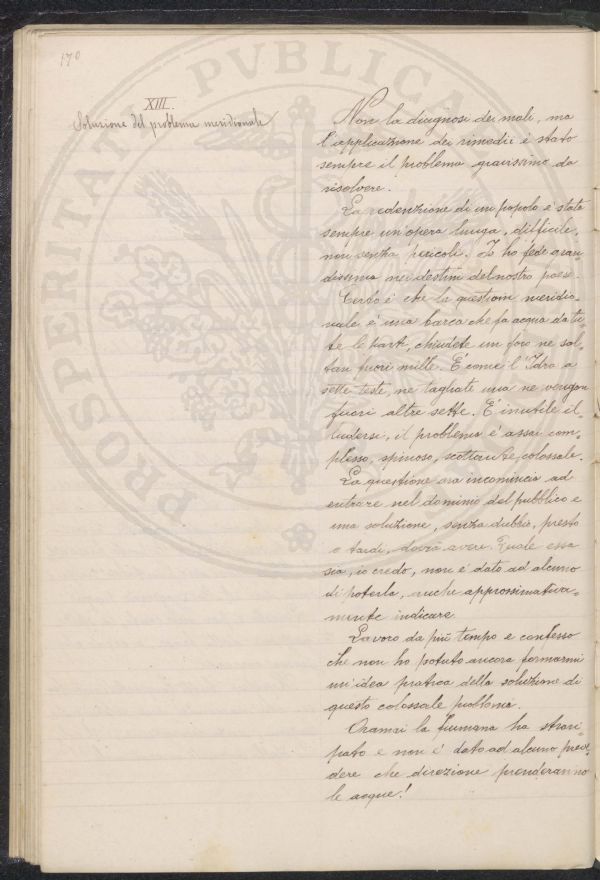 170
XIII.
Soluzione del problema meridionale
Non la diagnosi dei mali, ma
l'applicazione dei rimedii è stato
sempre il problema gravissimo da
risolvere.
La redenzione di un popolo è stata
sempre un'opera lunga, difficile,
non senza pericoli. Io ho fede gran
dissima nei destini del nostro paese.
Certo è che la question meridio-
nale è una barca che fa acqua da tut-
te le parti, chiudete un foro ne sal-
tan fuori mille. È come l'Idra a
sette teste, ne tagliate una ne vengon
fuori altre sette. È inutile il
ludersi, il problema è assai com-
plesso, spinoso, scottante, colossale.
La questione ora incomincia ad
entrare nel dominio del pubblico e
una soluzione, senza dubbio, presto
o tardi, dovrà avere. Quale essa
sia, io credo, non è dato ad alcuno
di poterla, anche approssimativa-
mente indicare.
Lavoro da più tempo e confesso
che non ho potuto ancora formarmi
un'idea pratica della soluzione di
questo colossale problema.
Oramai la fiumana ha strari-
pato e non è dato ad alcuno preve-
dere che direzione prenderanno
le acque!
PROSPERITATI PVBLICAE